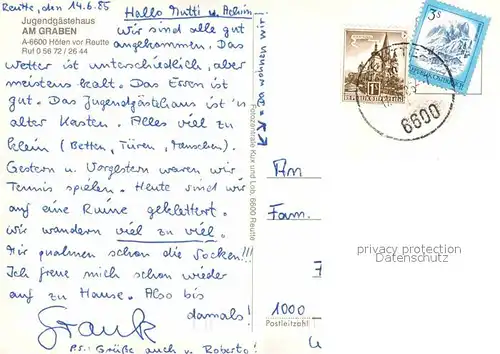 Reutte, den 14.6.85
Jugendgästehaus
AM GRABEN
A-6600 Höfen vor Reutte
Ruf 0 56 72 / 26 44
Hallo Mutti u. Achim!
Wir sind alle gut
angekommen. Das
Wetter ist unterschiedlich, aber
meistens kalt. Das Essen ist
gut. Das Jugendgästehaus ist 'n
alter Kasten. Alles viel zu
klein (Betten, Türen, Menschen).
Gestern u. Vorgestern waren wir
Tennis spielen. Heute sind wir
auf eine Ruine geklettert.
Wir wandern viel zu viel.
Mir qualmen schon die Socken!!!
Ich freue mich schon wieder
auf zu Hause. Also bis
damals!
Frank
P.S.: Grüße auch v. Roberto!
Wir wohnen im
Kurz und Lob, 6600 Reutte
S 1
REPUBLIK ÖSTERREICH
3S
REPUBLIK ÖSTERREICH
6600
An
Fam.
1000
Postleitzahl
privacy protection
Datenschutz